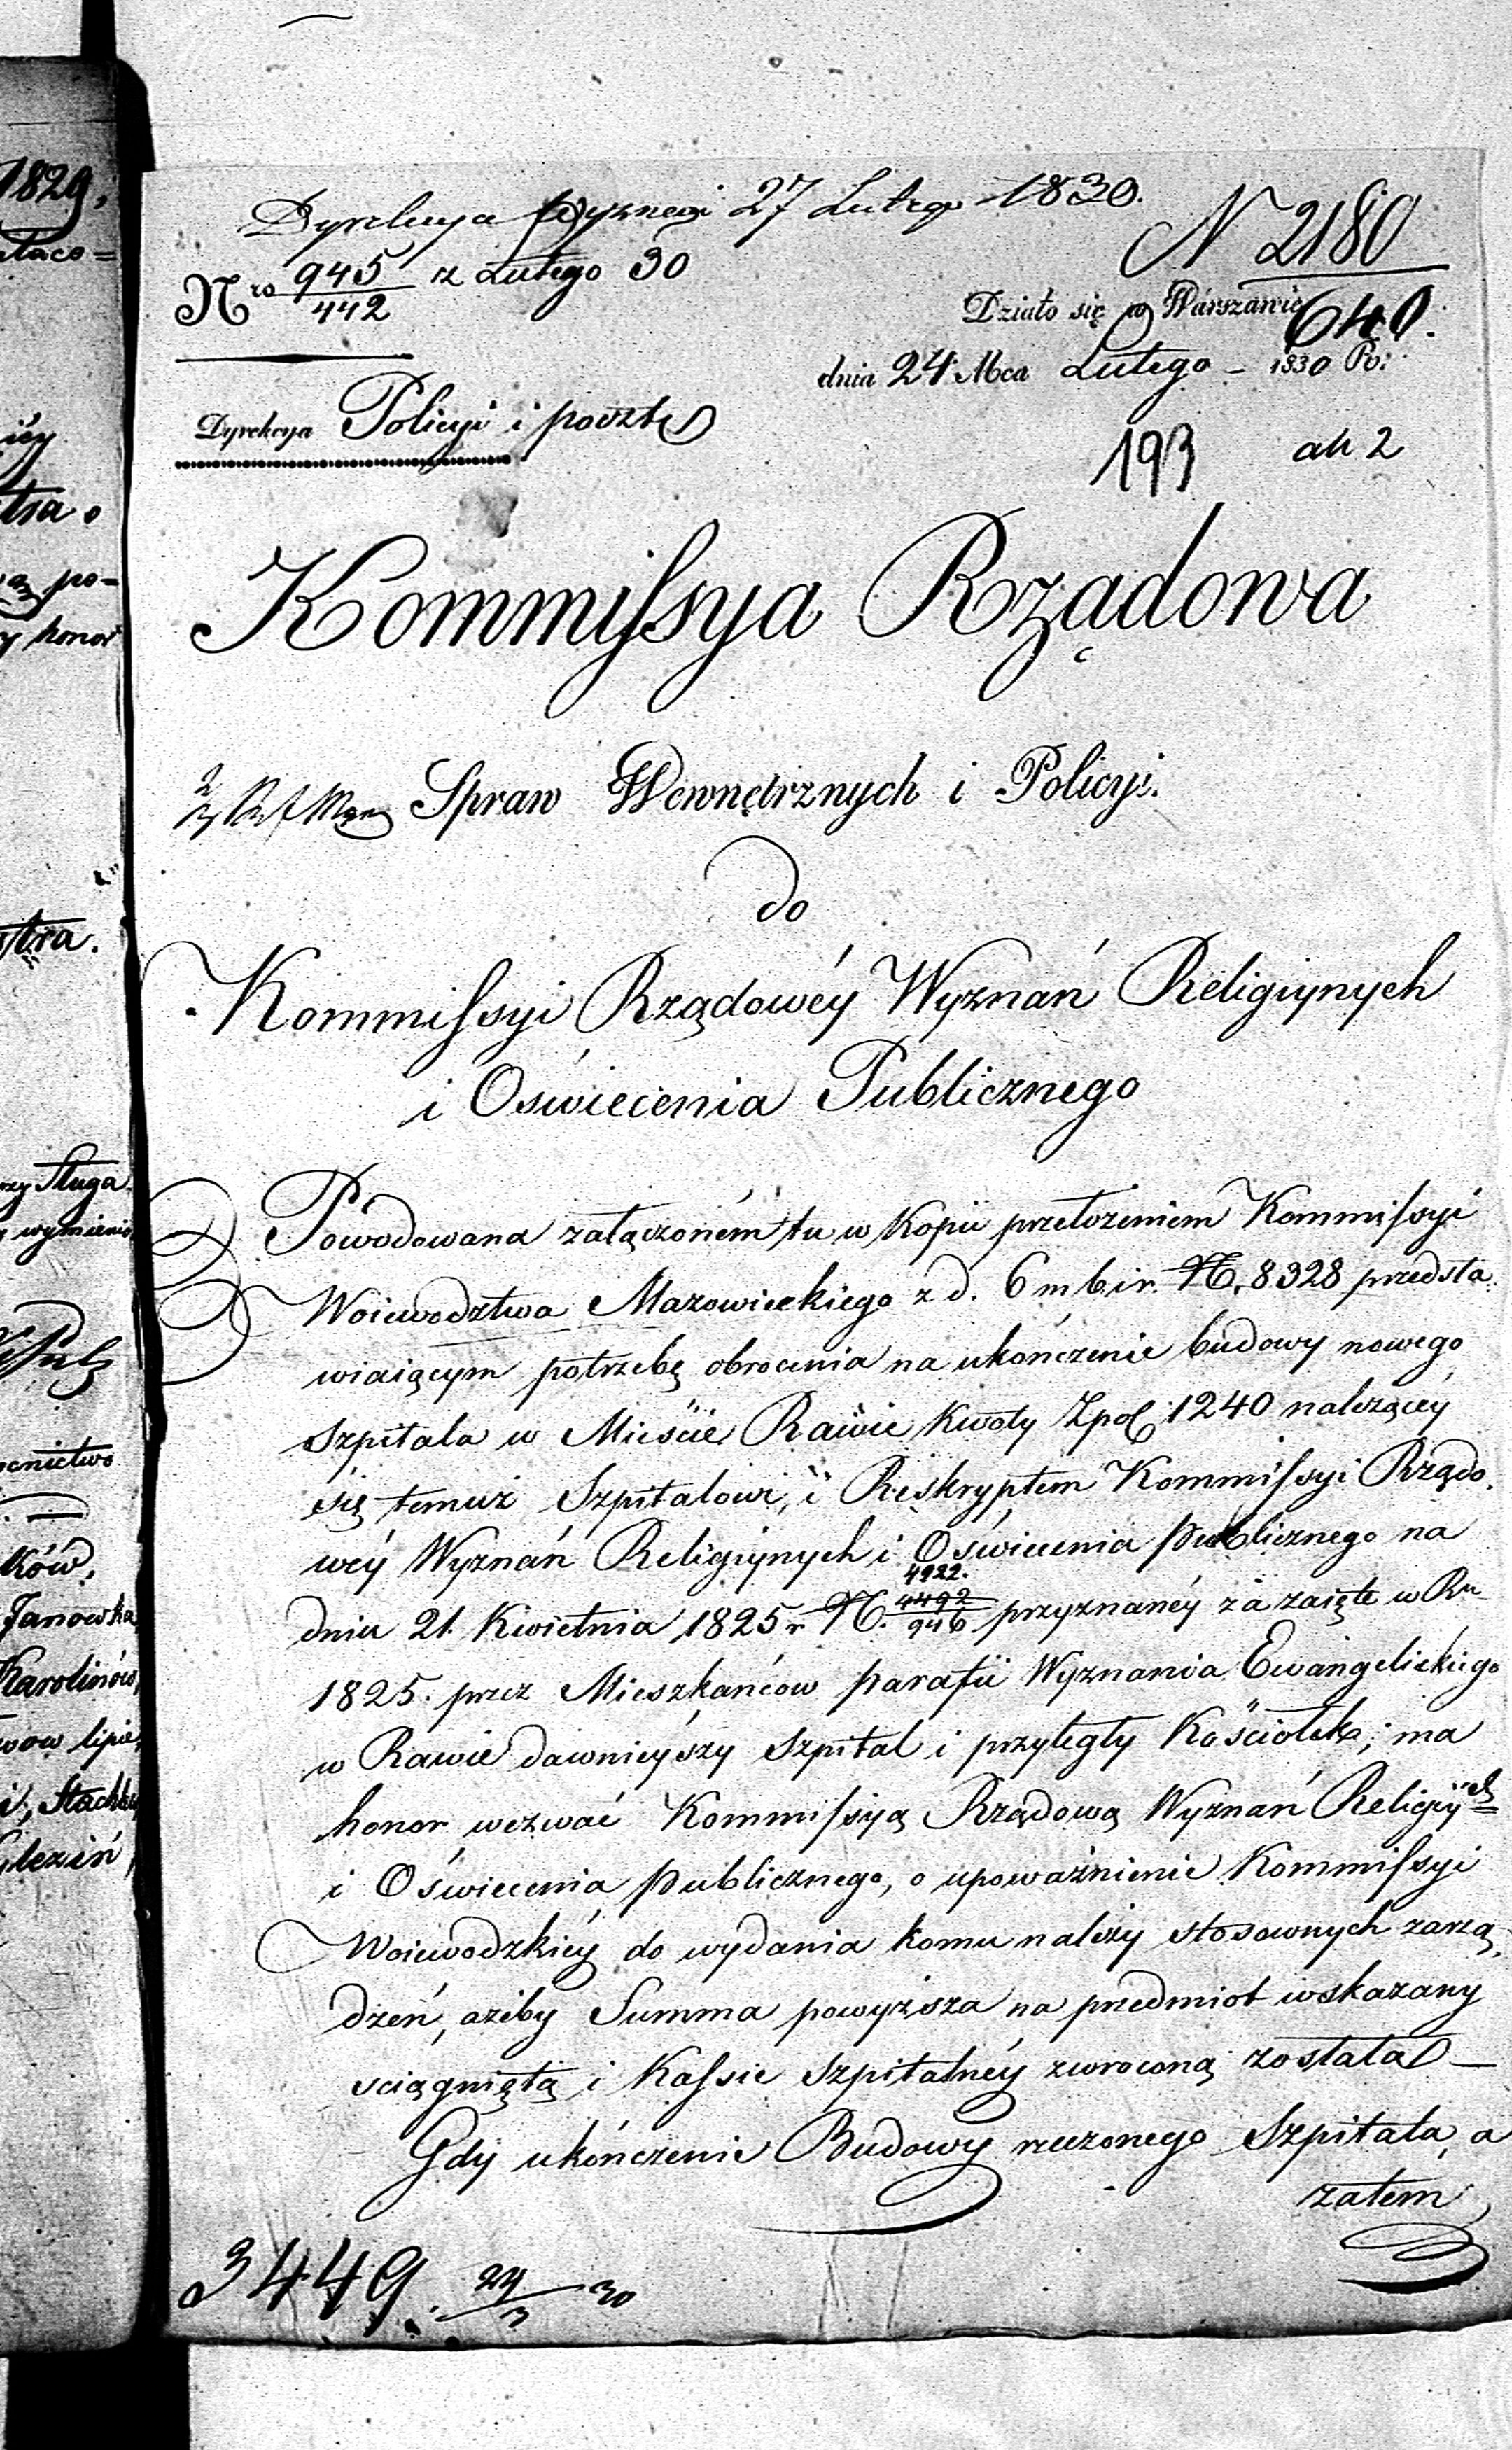 Dyrekcya Wyznań 27 Lutego 1830.
N 2180
Nro 945/442 z Lutego 30
Działo się w Warszawie
640.
dnia 24 Mca Lutego - 1830 Ro:
Dyrekcya Policyi i poczt
193 ah 2
Kommissya Rządowa
Spraw Wewnętrznych i Policyi.
do
Kommissyi Rządowéy Wyznań Religiynych
i Oświecenia Publicznego
Powodowana załączoném tu w Kopii przełożeniem Kommissyi
Woiewodztwa Mazowieckiego z d. 6 m b. i r. N. 8328 przedsta
wiaiącym potrzebę obrocenia na ukończenie budowy nowego
Szpitala w Mieście Rawie Kwoty Zpol: 1240 należącéy
się temuż Szpitalowi, i Reskryptem Kommissyi Rządo.
wéy Wyznań Religiynych i Oświecenia publicznego na
4922.
dniu 21. Kwietnia 1825 r N. 4492/946 przyznanéy za zaięte w Ru
1825. przez Mieszkańcow parafii Wyznania Ewangelickiego
w Rawie dawnieyszy Szpital i przyległy Kościołek; ma
honor wezwać Kommissyą Rządową Wyznań Religiych
i Oświecenia publicznego, o upoważnienie Kommissyi
Woiewodzkiéy do wydania komu należy stosownych zarzą,
dzeń, ażeby Summa powyższa na przedmiot wskazany
sciągniętą i Kassie Szpitalnéy zwroconą została —
Gdy ukończenie Budowy rzeczonego Szpitala, a
zatem
3449. 24/3 30
1829,
ićy
tra.
po=
honor
stra.
Sługa
wymienio
ków,
Janowka
Karolinów,
lipie,